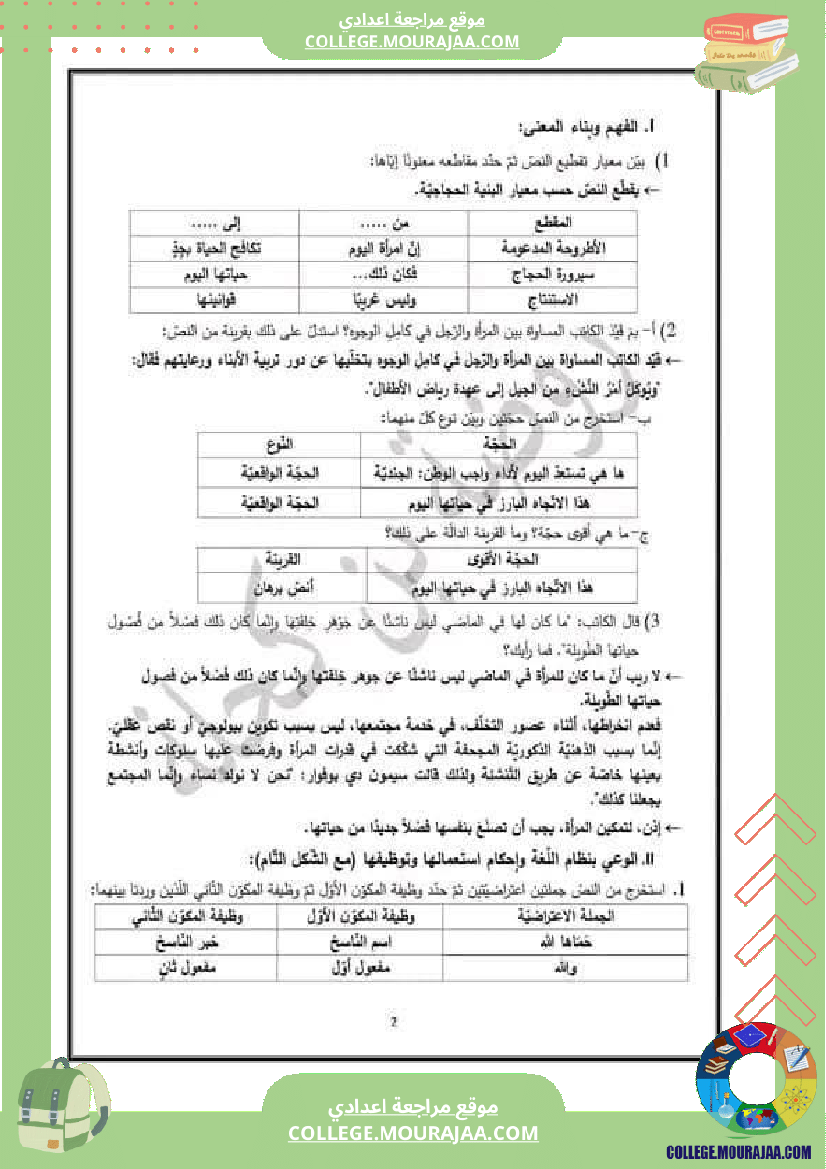 موقع مراجعة اعدادي
COLLEGE.MOURAJAA.COM
I. الفهم وبناء المعنى:
1) بيّن معيار تقطيع النصّ ثمّ حدّد مقاطعه معنونًا إيّاها:
← يقطّع النصّ حسب معيار البنية الحجاجيّة.
المقطع من ..... إلى .....
الأطروحة المدعومة إنّ امرأة اليوم تكافح الحياة بجدٍّ
سيرورة الحجاج فكان ذلك... حياتها اليوم
الاستنتاج وليس غريبًا قوانينها
2) أ- بمَ قيّد الكاتب المساواة بين المرأة والرّجل في كامل الوجوه؟ استدلّ على ذلك بقرينة من النصّ:
← قيّد الكاتب المساواة بين المرأة والرّجل في كامل الوجوه بتخلّيها عن دور تربية الأبناء ورعايتهم فقال:
"ويُوكلُ أمرُ النَّشْءِ من الجيل إلى عهدة رياض الأطفال".
ب- استخرج من النصّ حجّتين وبيّن نوع كلّ منهما:
الحجّة النّوع
ها هي تستعدّ اليوم لأداء واجب الوطن: الجنديّة الحجّة الواقعيّة
هذا الاتّجاه البارز في حياتها اليوم الحجّة الواقعيّة
ج- ما هي أقوى حجّة؟ وما القرينة الدالّة على ذلك؟
الحجّة الأقوى القرينة
هذا الاتّجاه البارز في حياتها اليوم أنصّ برهان
3) قال الكاتب: "ما كان لها في الماضي ليس ناشئًا عن جَوْهَرِ خِلقتِهَا وإنّما كان ذلك فصْلاً من فُصُول
حياتها الطّويلة". فما رأيك؟
← لا ريب أنّ ما كان للمرأة في الماضي ليس ناشئًا عن جوهر خِلقتها وإنّما كان ذلك فصْلاً من فصول
حياتها الطّويلة.
فعدم انخراطها، أثناء عصور التخلّف، في خدمة مجتمعها، ليس بسبب تكوين بيولوجيّ أو نقص عقليّ.
إنّما بسبب الذهنيّة الذّكوريّة المجحفة التي شكّكت في قدرات المرأة وفرضت عليها سلوكات وأنشطة
بعينها خاصّة عن طريق التّنشئة ولذلك قالت سيمون دي بوفوار: "نحن لا نولد نساء وإنّما المجتمع
يجعلنا كذلك".
← إذن، لتمكين المرأة، يجب أن تصنَعَ بنفسها فصْلاً جديدًا من حياتها.
II. الوعي بنظام اللّغة وإحكام استعمالها وتوظيفها (مع الشّكل التّام):
1. استخرج من النصّ جملتين اعتراضيّتين ثمّ حدّد وظيفة المكوّن الأوّل ثمّ وظيفة المكوّن الثّاني اللّذين وردتا بينهما:
الجملة الاعتراضيّة وظيفة المكوّن الأوّل وظيفة المكوّن الثّاني
حَمَاها الله اسم النّاسخ خبر النّاسخ
والله مفعول أوّل مفعول ثانٍ
2
موقع مراجعة اعدادي
COLLEGE.MOURAJAA.COM
COLLEGE.MOURAJAA.COM